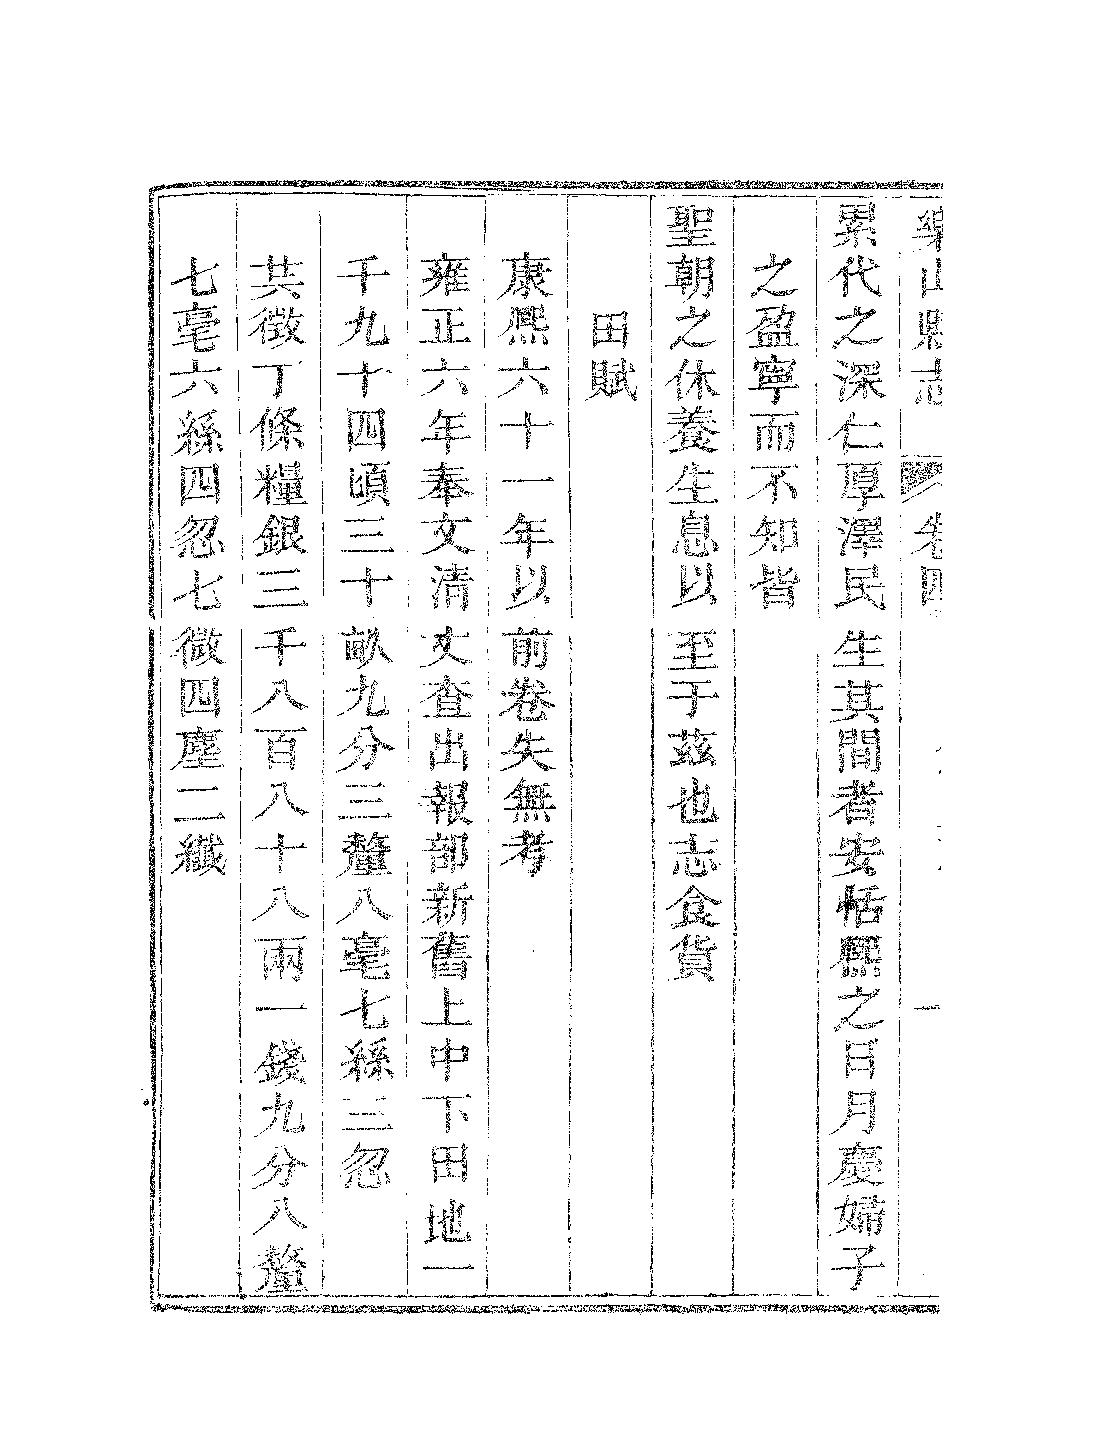 樂山縣志 卷四 一
累代之深仁厚澤民生其間者安恬熙之日月慶婦子
之盈寧而不知皆
聖朝之休養生息以至于茲也志食貨
田賦
康熙六十一年以前卷失無考
雍正六年奉文清丈查出報部新舊上中下田地一
千九十四頃三十畝九分三釐八毫七絲三忽
共徵丁條糧銀三千八百八十八兩一錢九分八釐
七毫六絲四忽七微四塵二纖